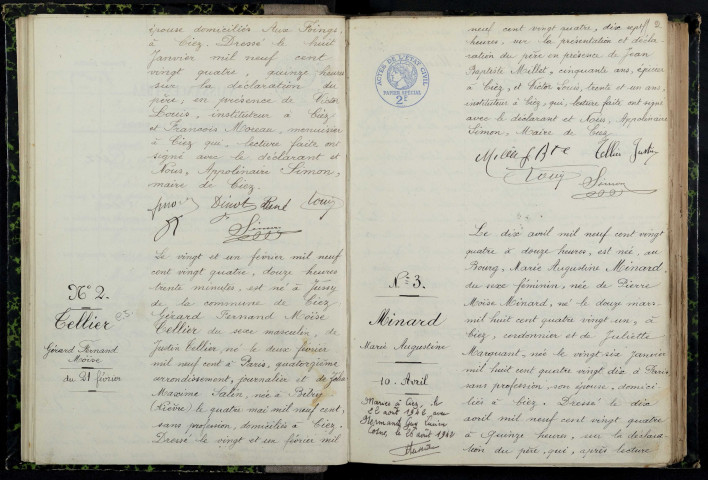 épouse domiciliés Aux Frings,
à Ciez. Dressé le huit
Janvier mil neuf cent
vingt quatre, quinze heures
sur la déclaration du
père, en présence de Victor
Louis, instituteur à Ciez
et François Moreau, menuisier
à Ciez qui, lecture faite ont
signé avec le déclarant et
Nous, Appolinaire Simon,
maire de Ciez.
Dinot René Louis
Simon
Nº 2.
Tellier
Gérard Fernand
Moïse
du 21 février
Le vingt et un février mil neuf
cent vingt quatre, douze heures
trente minutes, est né à Jussy
de la commune de Ciez
Gérard Fernand Moïse
Tellier du sexe masculin, de
Justin Tellier, né le deux février
mil neuf cent à Paris, quatorzième
arrondissement, journalier et de Julia
Maxime Salin, née à Bitry
(Nièvre) le quatre mai mil neuf cent,
sans profession, domiciliés à Ciez.
Dressé le vingt et un février mil
2
ACTES DE L'ÉTAT CIVIL
PAPIER SPÉCIAL
2F
neuf cent vingt quatre, dix sept
heures, sur la présentation et décla
ration du père en présence de Jean
Baptiste Millet, cinquante ans, épicier
à Ciez, et Victor Louis, trente et un ans,
instituteur à Ciez, qui, lecture faite ont signé
avec le déclarant et Nous, Appolinaire
Simon, Maire de Ciez
Millet J Bte Tellier Justin
Louis
Simon
Nº 3.
Minard
Marie Augustine
10 Avril
Mariée à Ciez, le
22 août 1942 avec
Hermand Guy Lucien
Cosne, le 26 août 1942
Le dix avril mil neuf cent vingt
quatre à douze heures, est née, au
Bourg, Marie Augustine Minard,
du sexe féminin, née de Pierre
Moïse Minard, né le douze mars
mil huit cent quatre vingt un, à
Ciez, cordonnier et de Juliette
Marquant, née le vingt six Janvier
mil huit cent quatre vingt dix à Paris
sans profession, son épouse, domici
liés à Ciez. Dressé le dix
avril mil neuf cent vingt quatre
à quinze heures, sur la déclara
tion du père, qui, après lecture